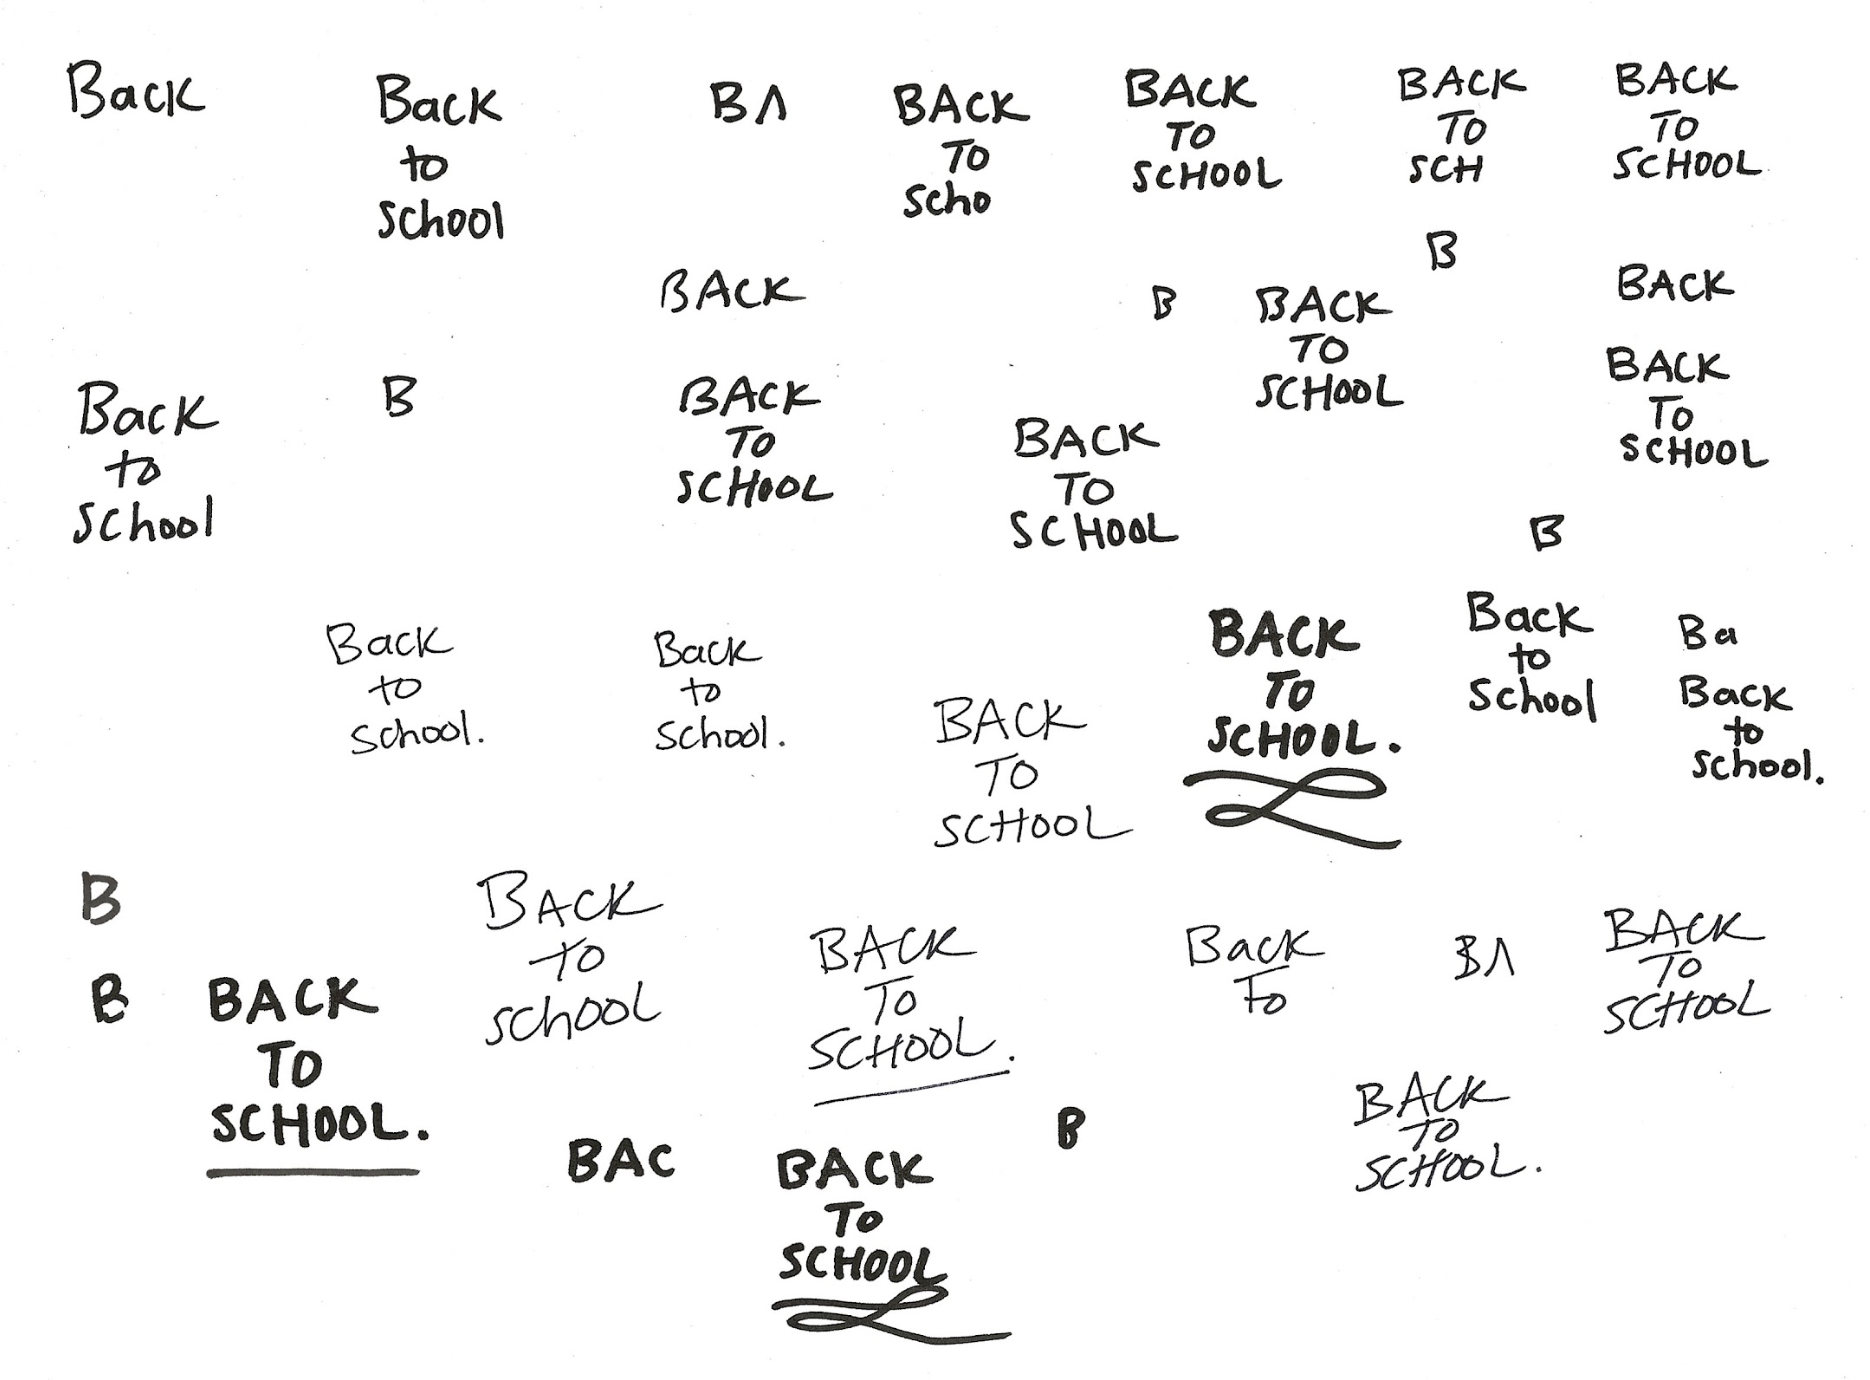 Back
Back
to
School
BΛ
BACK
TO
Scho
BACK
TO
SCHOOL
BACK
TO
SCH
BACK
TO
SCHOOL
B
BACK
B
BACK
TO
SCHOOL
BACK
Back
to
School
B
BACK
TO
SCHOOL
BACK
TO
SCHOOL
BACK
TO
SCHOOL
B
Back
to
School.
Back
to
School.
BACK
TO
SCHOOL
BACK
TO
SCHOOL.
Back
to
School
Ba
Back
to
School.
B
B
BACK
TO
SCHOOL.
BACK
to
SchOOL
BACK
TO
SCHOOL.
Back
Fo
BΛ
BACK
TO
SCHOOL
BAC
BACK
TO
SCHOOL
B
BACK
TO
SCHOOL.